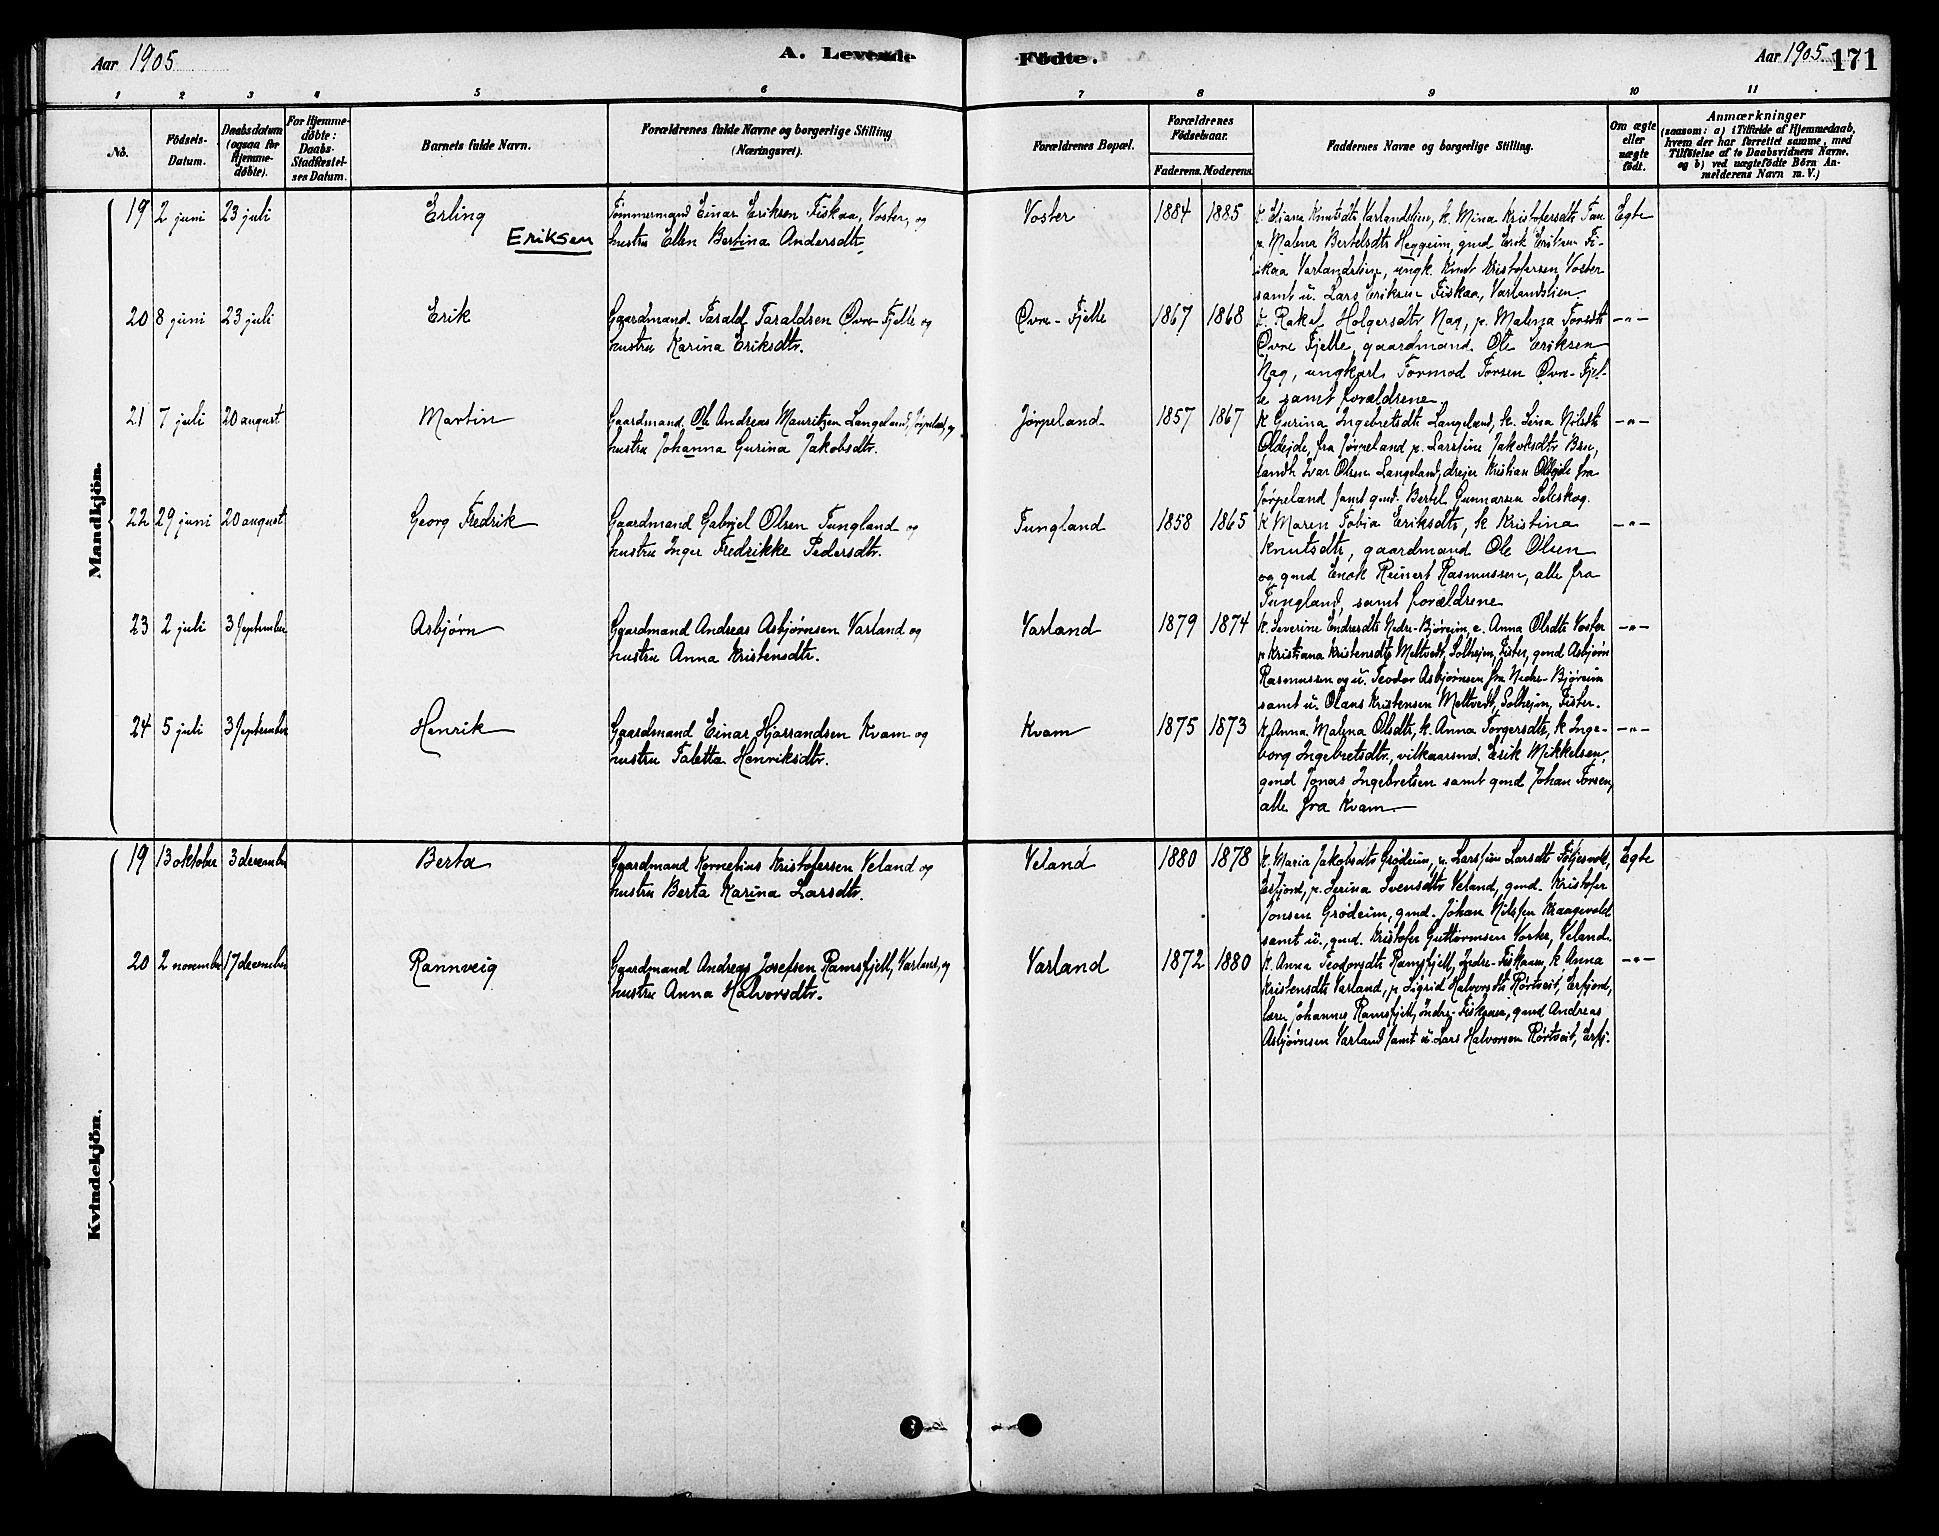 Aar 1905
A. Levende Födte.
Aar 1905
171
1 2 3 4 5 6 7 8 9 10 11
No.
Födsels-Datum.
Daabsdatum (ogsaa for Hjemme-døbte).
For Hjemme-døbte: Daabs-Stadfæstel-ses Datum.
Barnets fulde Navn.
Forældrenes fulde Navne og borgerlige Stilling (Næringsvei).
Forældrenes Bopæl.
Forældrenes Födselsaar.
Faderens. Moderens.
Faddernes Navne og borgerlige Stilling.
Om ægte eller uægte födt.
Anmærkninger
(saasom: a) i Tilfælde af Hjemmedaab,
hvem der har forrettet samme, med
Tilføielse af to Daabsvidners Navne.
og b) ved uægtefödte Börn An-
melderens Navn m. V.)
Mandkjön.
19 2 juni 23 juli Erling Eriksen
Tømmermand Einar Eriksen Fiskaa, Voster, og
hustru Ellen Bertina Andersdtr
Voster 1884 1885
k. Eliana Knutsdtr Varlandslien, k. Mina Kristofersdtr
p. Malena Bertelsdtr Heggeim, gmd Erik Eriksen Fi-
skaa Varlandslien, ungk. Knut Kristofersen Voster
samt u. Lars Eriksen Fiskaa, Varlandslien.
Egte
20 8 juni 23 juli Erik
Gaardmand Tarald Taraldsen Øvre-Fjelle og
hustru Karina Eriksdtr.
Øvre-Fjelle 1867 1868
k. Rakel Holgersdtr Nag, p. Malena Torsdtr
Øvre Fjelle, gaardmand Ole Eriksen
Nag, ungkarl Tormod Torsen Øvre-Fjel-
le samt forældrene
-"-
21 7 juli 20 august Martin
Gaardmand Ole Andreas Mauritzen Langeland, Jørpeland, og
hustru Johanna Gurina Jakobsdtr.
Jørpeland 1857 1867
k Gurina Ingebretsdtr Langeland, k. Lina Nilsdtr
Oldejde, fra Jørpeland p. Larsline Jakobsdtr
landh. Ivar Olsen Langeland, drejer Kristian Oldejde fra
Jørpeland samt gmd. Bertel Gunnarsen Seleskog.
-"-
22 29 juni 20 august Georg Fredrik
Gaardmand Gabriel Olsen Tungland og
hustru Inger Fredrikke Pedersdtr.
Tungland 1858 1865
k Maren Tobia Eriksdtr, k Kristina
Knutsdtr, gaardmand Ole Olsen
og gmd Enok Reinert Rasmussen, alle fra
Tungland, samt forældrene
-"-
23 2 juli 3 September Asbjørn
Gaardmand Andreas Asbjørnsen Varland og
hustru Anna Kristensdtr.
Varland 1879 1874
k. Severine Endresdtr Nedre-Bjøreim, e. Anna Olsdtr Voster
p Kristiana Kristensdtr Meltvedt, Solheim, Fister, gmd Asbjørn
Rasmussen og u. Teodor Asbjørnsen fra Nedre-Bjøreim
samt u. Olaus Kristensen Meltvedt, Solheim, Fister.
-"-
24 5 juli 3 September Henrik
Gaardmand Einar Hjorrandsen Kvam og
hustru Taletta Henriksdtr.
Kvam 1875 1873
k Anna Malena Olsdtr, k. Anna Torgersdtr, k Inge-
borg Ingebretsdtr., vilkaarsmd. Erik Mikkelsen,
gmd Jonas Ingebretsen samt gmd Johan Torsen,
alle fra Kvam
-"-
Kvindekjön.
19 13 oktober 3 december Berta
Gaardmand Kornelius Kristofersen Veland og
hustru Berta Karina Larsdtr.
Veland 1880 1878
k. Maria Jakobsdtr Grødeim, p. Larsline Larsdtr
Erfjord, p. Serina Svensdtr Veland, gmd. Kristofer
Jonsen Grødeim, gmd. Johan Nilssen Kraagevold
samt u., gmd. Kristofer Guttormsen Veland.
Egte
20 2 november 17 december Rannveig
Gaardmand Andreas Josefsen Ramsfjell, Varland, og
hustru Anna Halvorsdtr.
Varland 1872 1880
k. Anna Teodorsdtr Ramsfjell, Indre-Fiskaaen, k Anna
Kristensdtr Varland, p Sigrid Halvorsdtr Rørtveit, Erfjord,
lærer Johannes Ramsfjell, Indre-Fiskaaen, gmd Andreas
Asbjørnsen Varland samt u. Lars Halvorsen Rørtveit, Erfj.
-"-